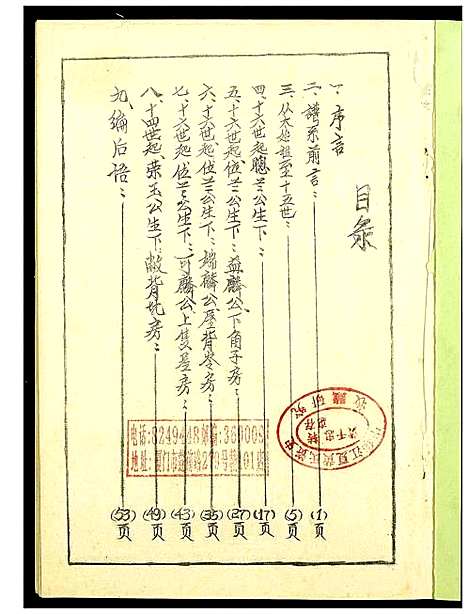 目录
一、序言
二、谱系前言：(1)页
三、从太始祖至十五世：(5)页
四、十六世起聪兰公生下：(17)页
五、十六世起位兰公生下：益麟公下角子房：(27)页
六、十六世起位兰公生下：瑞麟公屋背岺房：(35)页
七、十六世起位兰公生下：可麟公上隻屋房：(43)页
八、十四世起荣玉公生下：敝背坑房：(49)页
九、编后语：(53)页
江夏黄氏
电话：
邮编：
地址：